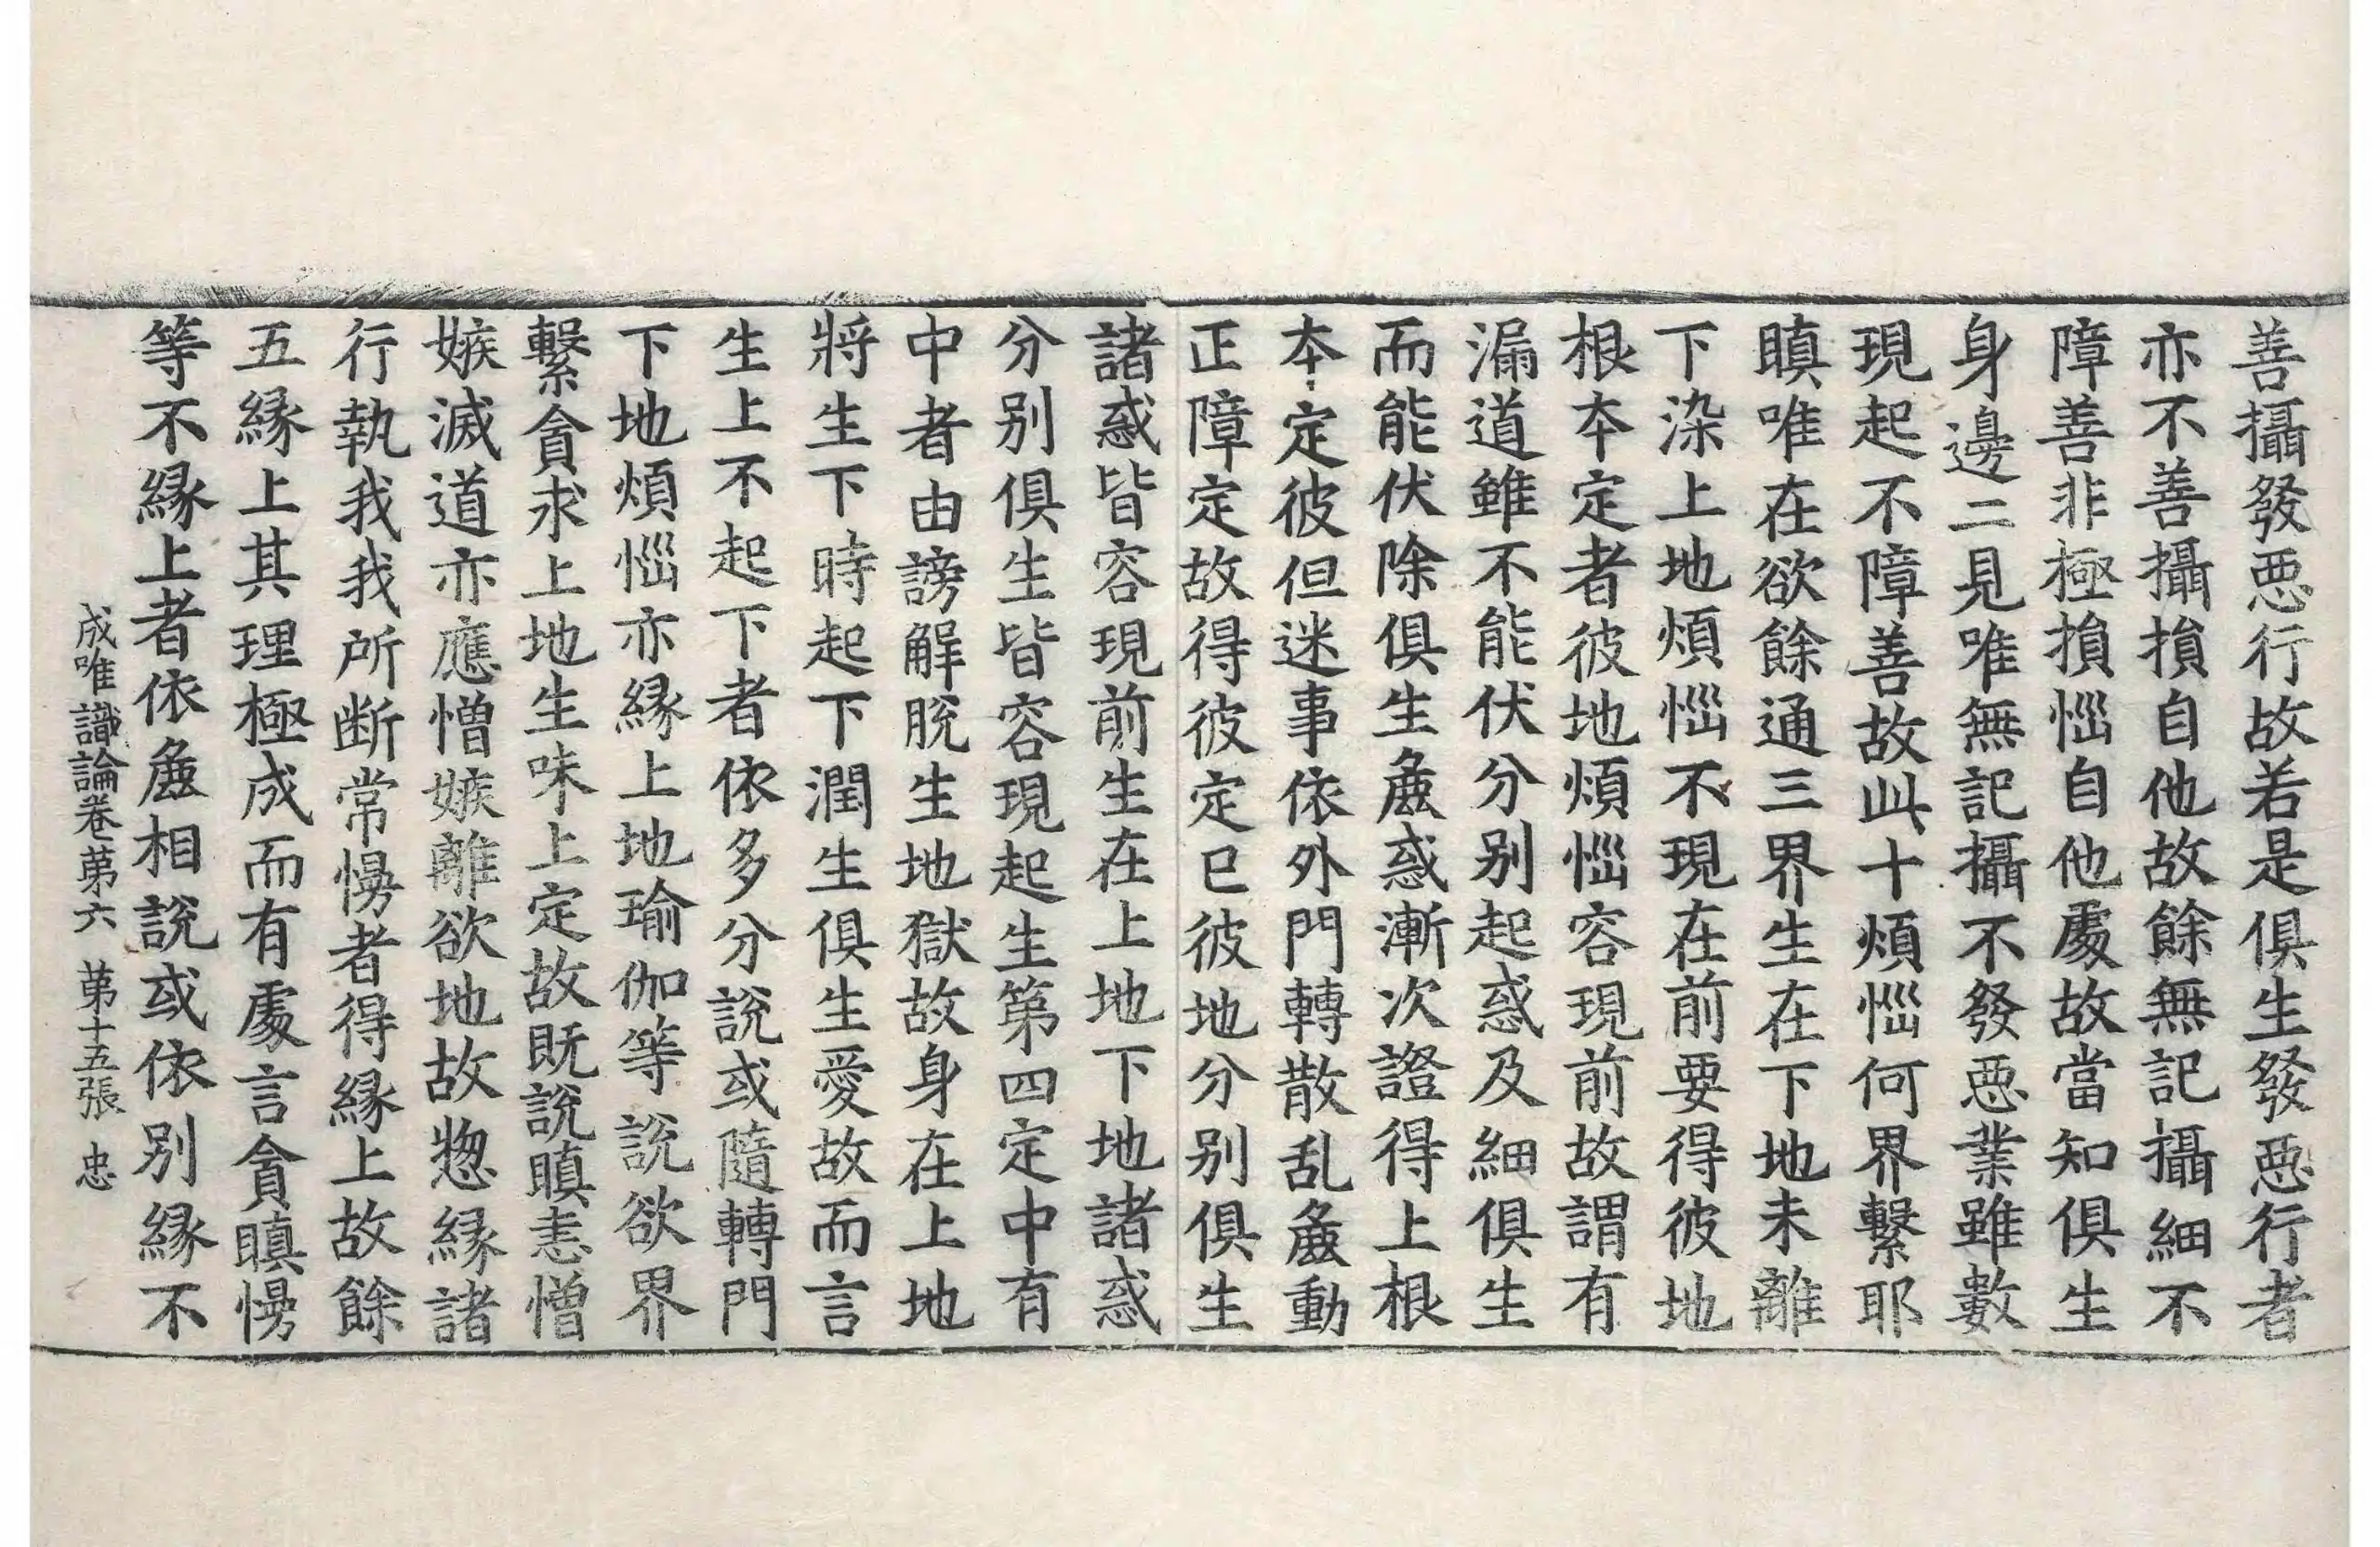 善攝發惡行故若是俱生發惡行者
亦不善攝損自他故餘無記攝細不
障善非極損惱自他處故當知俱生
身邊二見唯無記攝不發惡業雖數
現起不障善故此十煩惱何界繫耶
瞋唯在欲餘通三界生在下地未離
下染上地煩惱不現在前要得彼地
根本定者彼地煩惱容現前故謂有
漏道雖不能伏分別起惑及細俱生
而能伏除俱生麁惑漸次證得上根
本定彼但迷事依外門轉散乱麁動
正障定故得彼定已彼地分別俱生
諸惑皆容現前生在上地下地諸惑
分別俱生皆容現起生第四定中有
中者由謗解脫生地獄故身在上地
將生下時起下潤生俱生愛故而言
生上不起下者依多分說或隨轉門
下地煩惱亦緣上地瑜伽等說欲界
繫貪求上地生味上定故既說瞋恚憎
嫉滅道亦應憎嫉離欲地故惣緣諸
行執我我所斷常慢者得緣上故餘
五緣上其理極成而有處言貪瞋慢
等不緣上者依麁相說或依別緣不
成唯識論卷第六 第十五張 忠